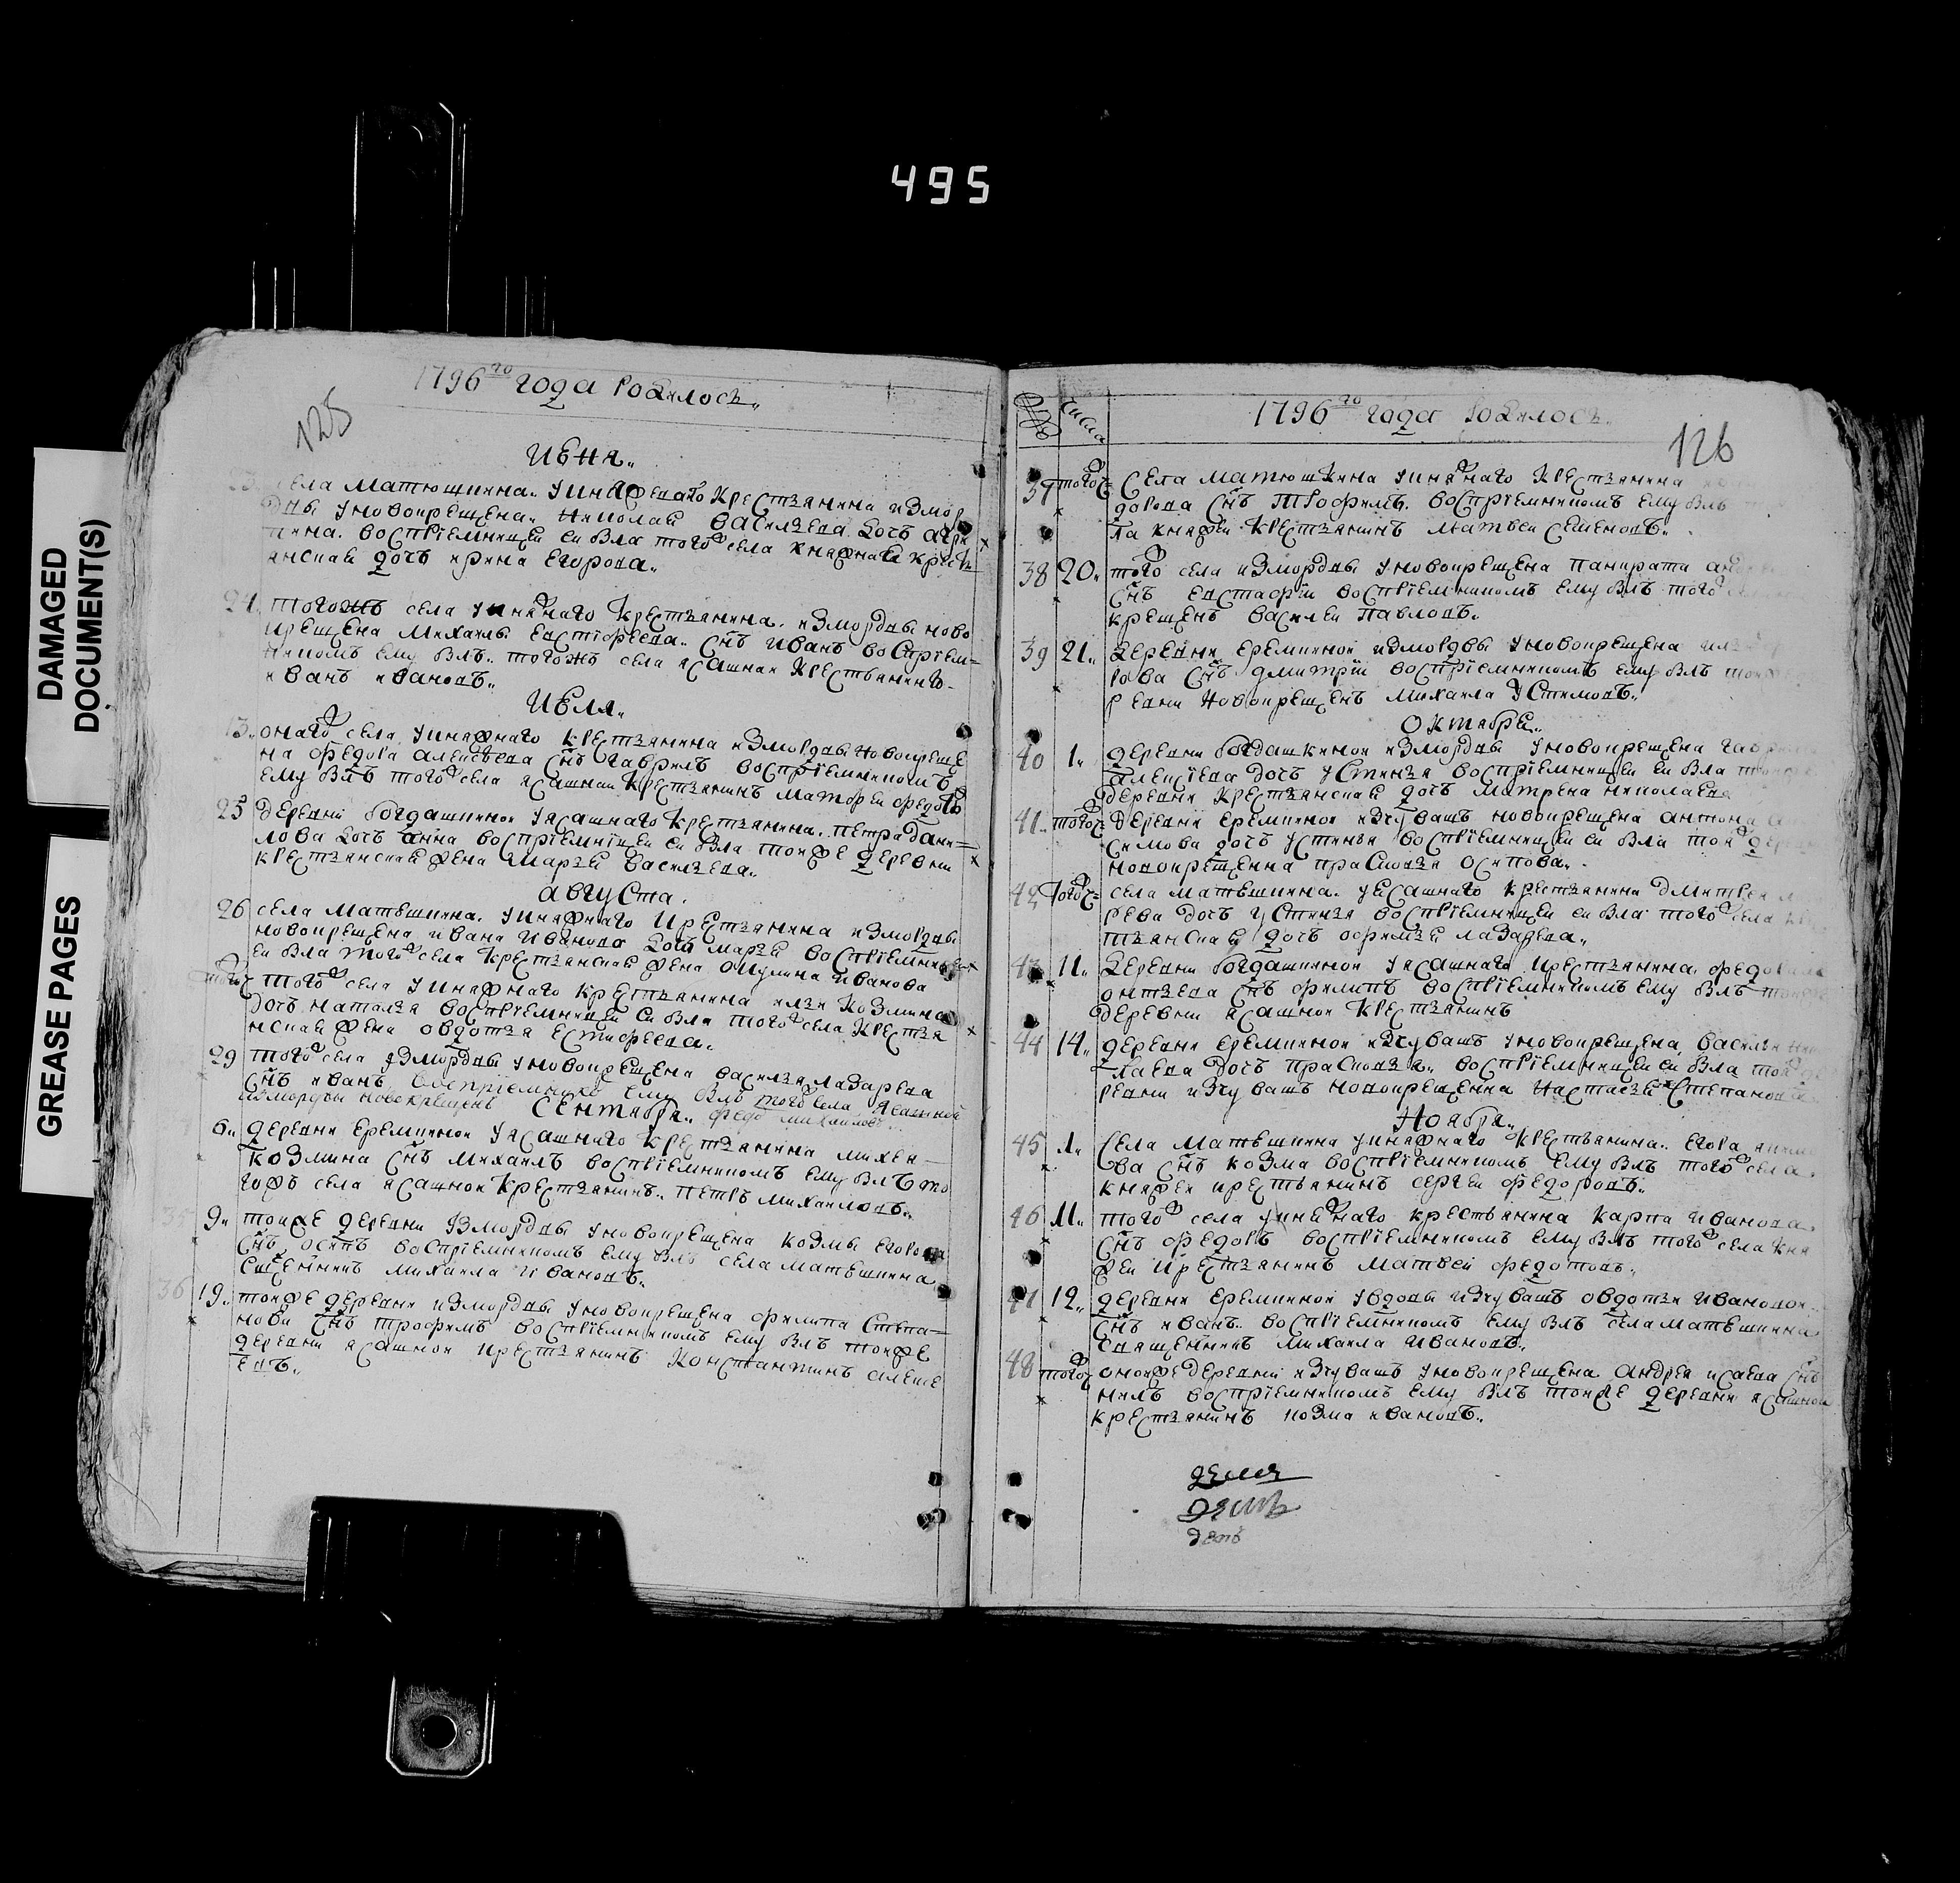 495
DAMAGED
DOCUMENT(S)
GREASE PAGES
1796го года родилось
125
июня
села матюшкина у княжеаго крестьянина измор
двы у новокрещена николая василева дочь агри
пина. восприемницей ей была того ж села княжнай крест
янская дочь ирина егорова
24. тогожъ села у княжнаго крестьянина измордвы ново
крещена михаилы евстифеева снъ иванъ восприем=
никомъ ему былъ тогожъ села ясашнои крестьянинъ
иванъ ивановъ
июля
13. онаго ж села у княжнаго крестьянина измордвы новокреще
на федора алексеева снъ гаврилъ восприемникомъ
ему былъ того ж села ясашнои крестьянинъ матфеи федотовъ
25 деревни богдашкинои у ясашнаго крестьянина петра дани=
лова дочь анна восприемницеи еи была тоиже деревни
крестьянская жена марья василева
августа
26 села матюшкина у княжнаго крестьянина измордвы
новокрещена ивана иванова дочь марья восприемницеи
еи была того ж села крестьянская жена акулина иванова
того ж того ж села у княжнаго крестьянина илья козмина
дочь наталья восприемницеи еи была того ж села крестья
нская жена овдотья естифеева
29 того ж села измордвы у новокрещена василья лазарева
снъ иванъ восприемникъ ему былъ того села ясашной
измордвы новокрещенъ федо михаиловъ
сентября
6 деревни еремкинои у ясашнаго крестьянина михеи
козмина снъ михаилъ восприемникомъ ему былъ то
гожъ села ясашнои крестьянинъ петръ михаиловъ
35 9 тоиже деревни измордвы у новокрещена козмы егорова
снъ осипъ восприемникомъ ему былъ села матюшкина
священникъ михаила ивановъ
36 19 тоиже деревни измордвы у новокрещена филипа степа=
нова снъ трофимъ восприемникомъ ему былъ тоиже
деревни ясашнои крестьянинъ константинъ алексе
евъ
числа
1796го года родилось
126
37 того ж села матюшкина у княжнаго крестьянина
дорова снъ трофимъ восприемникомъ ему былъ
ла княжеи крестьянинъ матвеи семеновъ
38 20 того ж села измордвы у новокрещена панкрата
снъ евстафiи восприемникомъ ему былъ того ж
крещенъ василеи павловъ
39 21 деревни еремкинои измордвы у новокрещена
рова снъ дмитрiи восприемникомъ ему былъ тоиже
ревни новокрещенъ михаила устимовъ
октября
40 1 деревни богдашкинои измордвы у новокрещена
алексiева дочь устинья восприемницеи еи была
деревни крестьянская дочь матрена николаева
41 того ж деревни еремкинои изчувашъ новокрещена антона
симова дочь устинья восприемницеи еи была тои ж
новокрещенна прасковья осипова
42 того ж села матюшкина у ясашнаго крестьянина дмитрея
рева дочь устинья восприемницеи еи была того ж села
тьянская дочь офимья лазарева
43 11 деревни богдашкинои у ясашнаго крестьянина
онтьева снъ филипъ восприемникомъ ему былъ
деревни ясашнои крестьянинъ
44 14 деревни еремкинои изчувашъ у новокрещена василья
лаева дочь прасковья восприемницеи еи была тои ж
ревни изчувашъ новокрещенна настасья степанова
ноября
45 1 села матюшкина у княжнаго крестьянина егора
ва снъ козма восприемникомъ ему былъ того ж села
княжеи крестьянинъ сергеи федоровъ
46 11 того ж села у княжнаго крестьянина карпа иванова
снъ федоръ восприемникомъ ему былъ того ж села кня
жеи крестьянинъ матвеи федотовъ
47 12 деревни еремкинои у вдовы изчувашъ овдотьи ивановои
снъ иванъ восприемникомъ ему былъ села матюшкина
священникъ михаила ивановъ
48 того ж оноиже деревни изчувашъ у новокрещена андрея исаева снъ
нилъ восприемникомъ ему былъ тоиже деревни ясашнои
крестьянинъ козма ивановъ